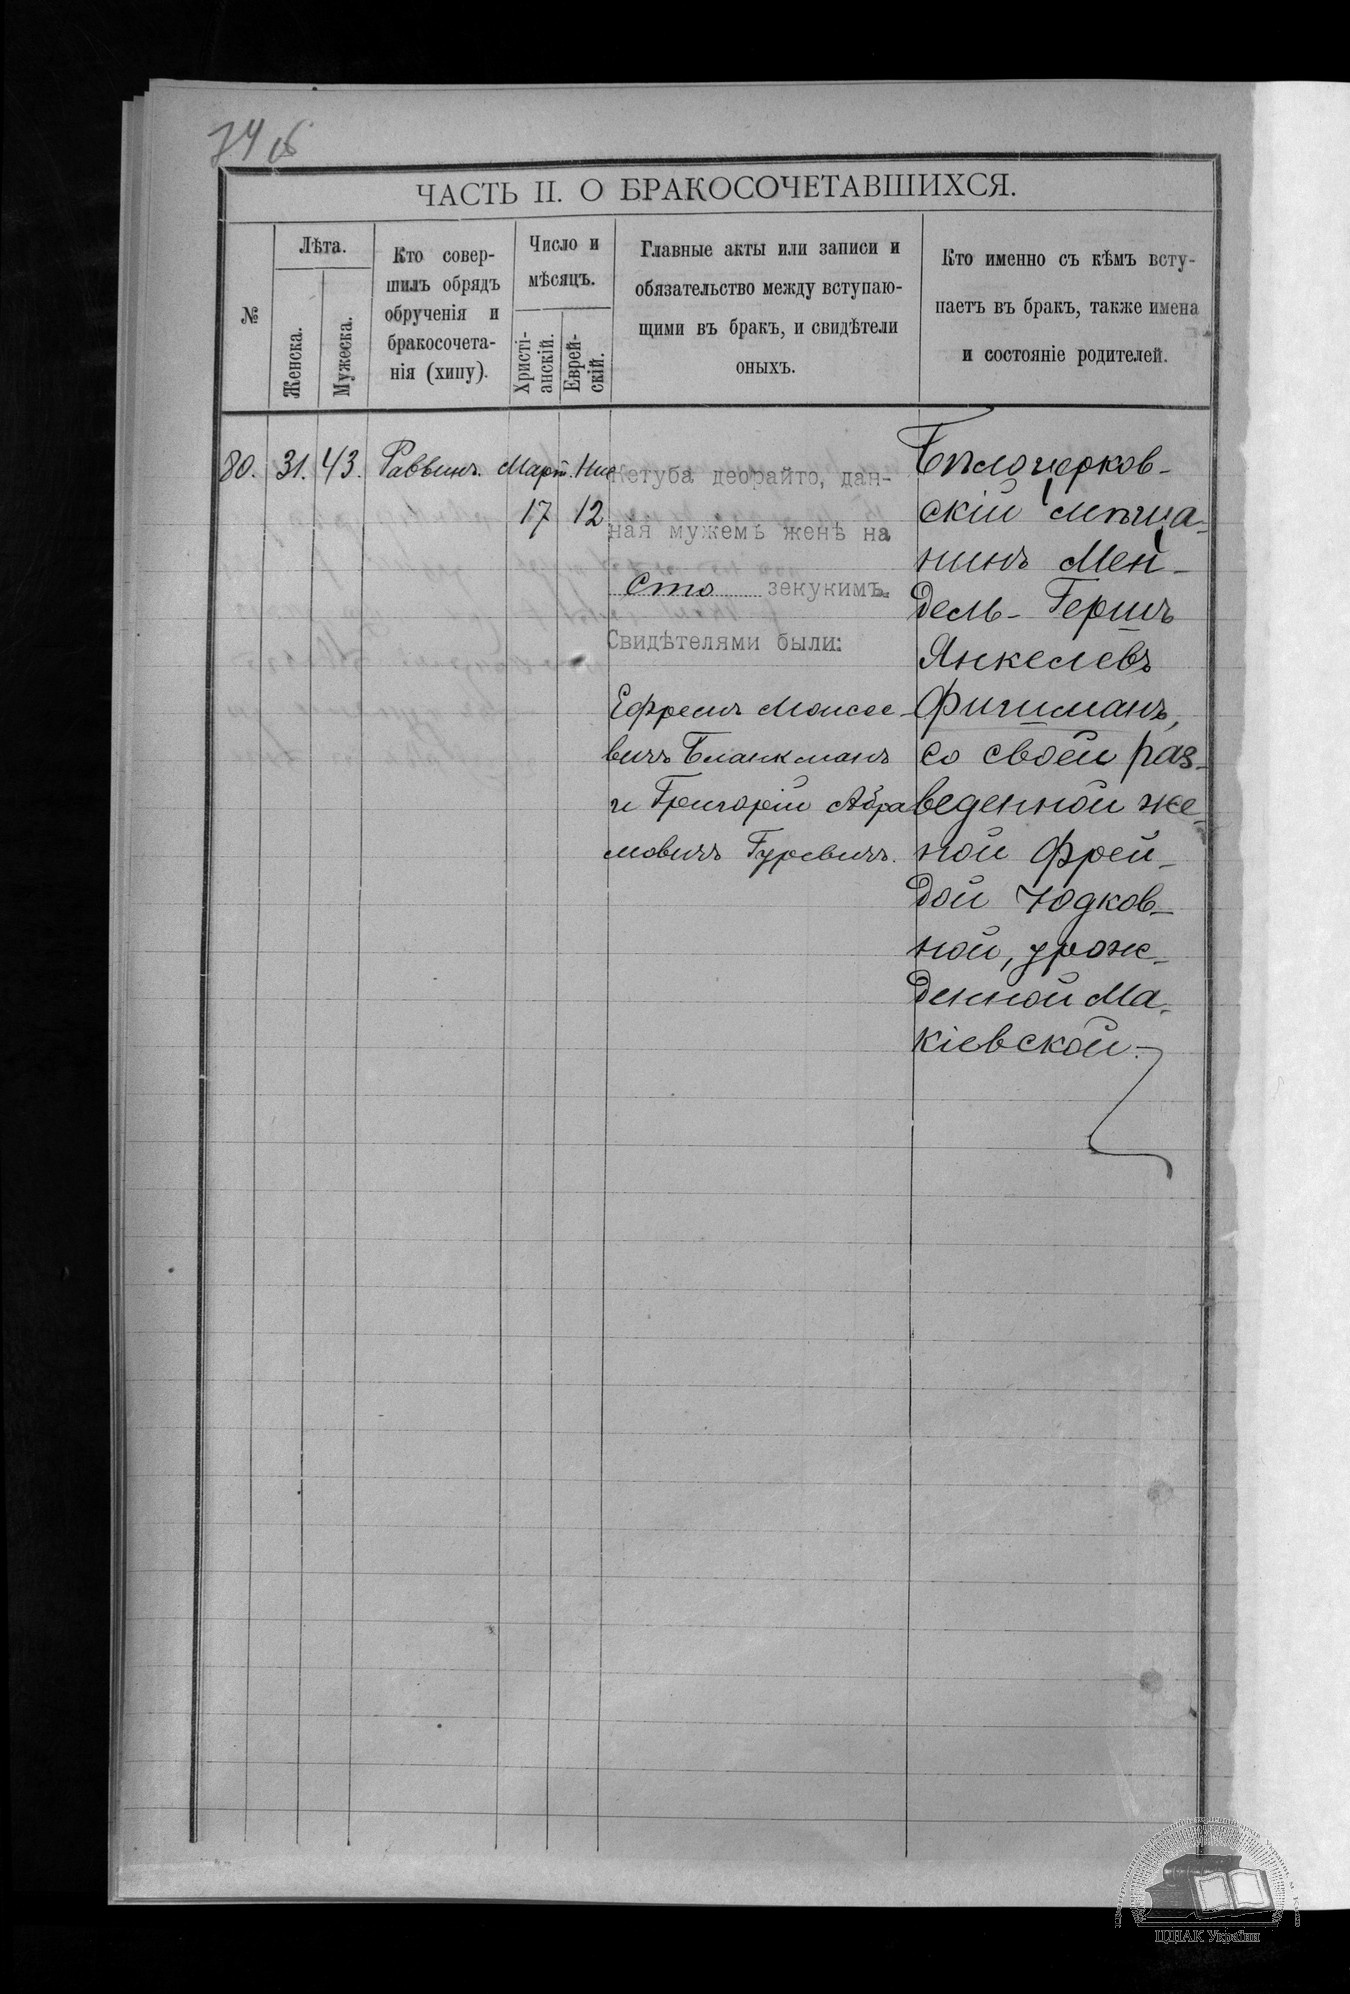 74 об
ЧАСТЬ II. О БРАКОСОЧЕТАВШИХСЯ.
№
Лѣта.
Женска.
Мужеска.
Кто совер-
шилъ обрядъ
обрученія и
бракосочета-
нія (хипу).
Число и
мѣсяцъ.
Христі-
анскій.
Еврей-
скій.
Главные акты или записи и
обязательство между вступаю-
щими въ бракъ, и свидѣтели
оныхъ.
Кто именно съ кѣмъ всту-
паетъ въ бракъ, также имена
и состояніе родителей.
80. 31. 43. Раввинъ. Март. Нис
17 12
Кетуба деорайто, дан-
ная мужемъ женѣ на
сто зекукимъ.
Свидѣтелями были:
Ефремъ Моисее-
вичъ Бланкманъ
и Григорій Абра
мовичъ Гуревичъ.
Бѣлоцерков-
скій мѣща-
нинъ Мен-
дель-Гершъ
Янкелевъ
Фишманъ,
со своей раз-
веденной же-
ной Фрей-
дой Юдков-
ной, урож-
денной Ма-
кіевской.
ЦДІАК України